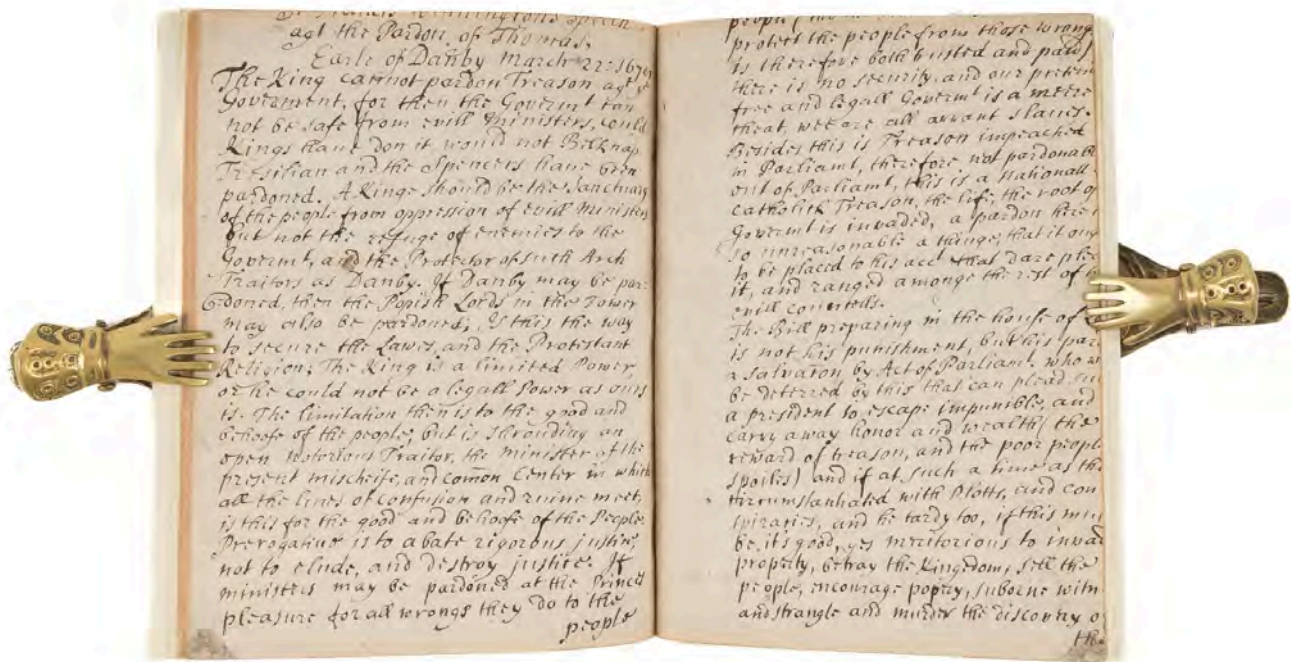 Sr Francis Winningtons Speech
agt the Pardon, of Thomas,
Earle of Danby March 22: 1678/9
The King cannot pardon Treason agt ye
Goverment, for then the Govermt can
not be safe from evill Ministers, could
Kings haue don it would not Belknap
Tresilian and the Spencers haue bren
pardoned. A Kinge should be the Sanctuary
of the people from oppression of evill Ministers
but not the refuge of enemies to the
Govermt, and the Protector of such Arch
Traitors as Danby. If Danby may be par=
doned, then the Popish Lords in the Tower
may also be pardoned; Is this the way
to secure the Lawes, and the Protestant
Religion; The King is a limited Power
or he could not be a legall Power as ours
is. The limitation then is to the good and
behoofe of the people; but is shrouding an
open Notorious Traitor, the minister of the
present mischeife, and comon Center in which
all the lines of confusion and ruine meet,
is this for the good and behoofe of the People
Prerogative is to abate rigorous justice
not to elude, and destroy justice. If
ministers may be pardoned at the Princes
pleasure for all wrongs they do to the
people
people
protect the people from those wrong
is therefore both trusted and paid
there is no security, and our preten
free and legall Govermt is a meere
cheat, wee are all arrant slaues.
Besides this is Treason impeached
in Parliamt, therefore not pardonabl
out of Parliamt, this is a Nationall
Catholick Treason, the life, the root of
Govermt is invaded, a pardon here
so unreasonable a thinge, that it oug
to be placed to his acct that dare ple
it, and ranged amonge the rest of
evill councells.
The Bill preparing in the house of
is not his punishment, but his par
a salvation by Act of Parliamt. who w
be deterred by this that can plead su
a president to escape impunible, and
carry away honor and wealth (the
reward of treason, and the poor peopl
spoiles) and if at such a time as th
circumstantiated with Plotts, and con
spiracies, and he tardy too, if this mu
be, it's good, yes meritorious to invad
property, betray the Kingdom, sell the
people, encourage popery, suborne witn
and strangle and murder the discovery o
the